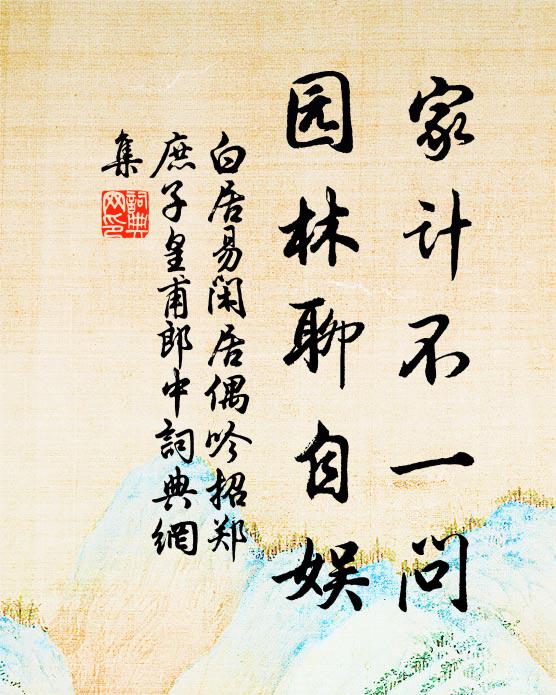 家计不一问
园林聊自娱
白居易闲居偶吟招郑
庶子皇甫郎中詞典網
集
詞典
网印